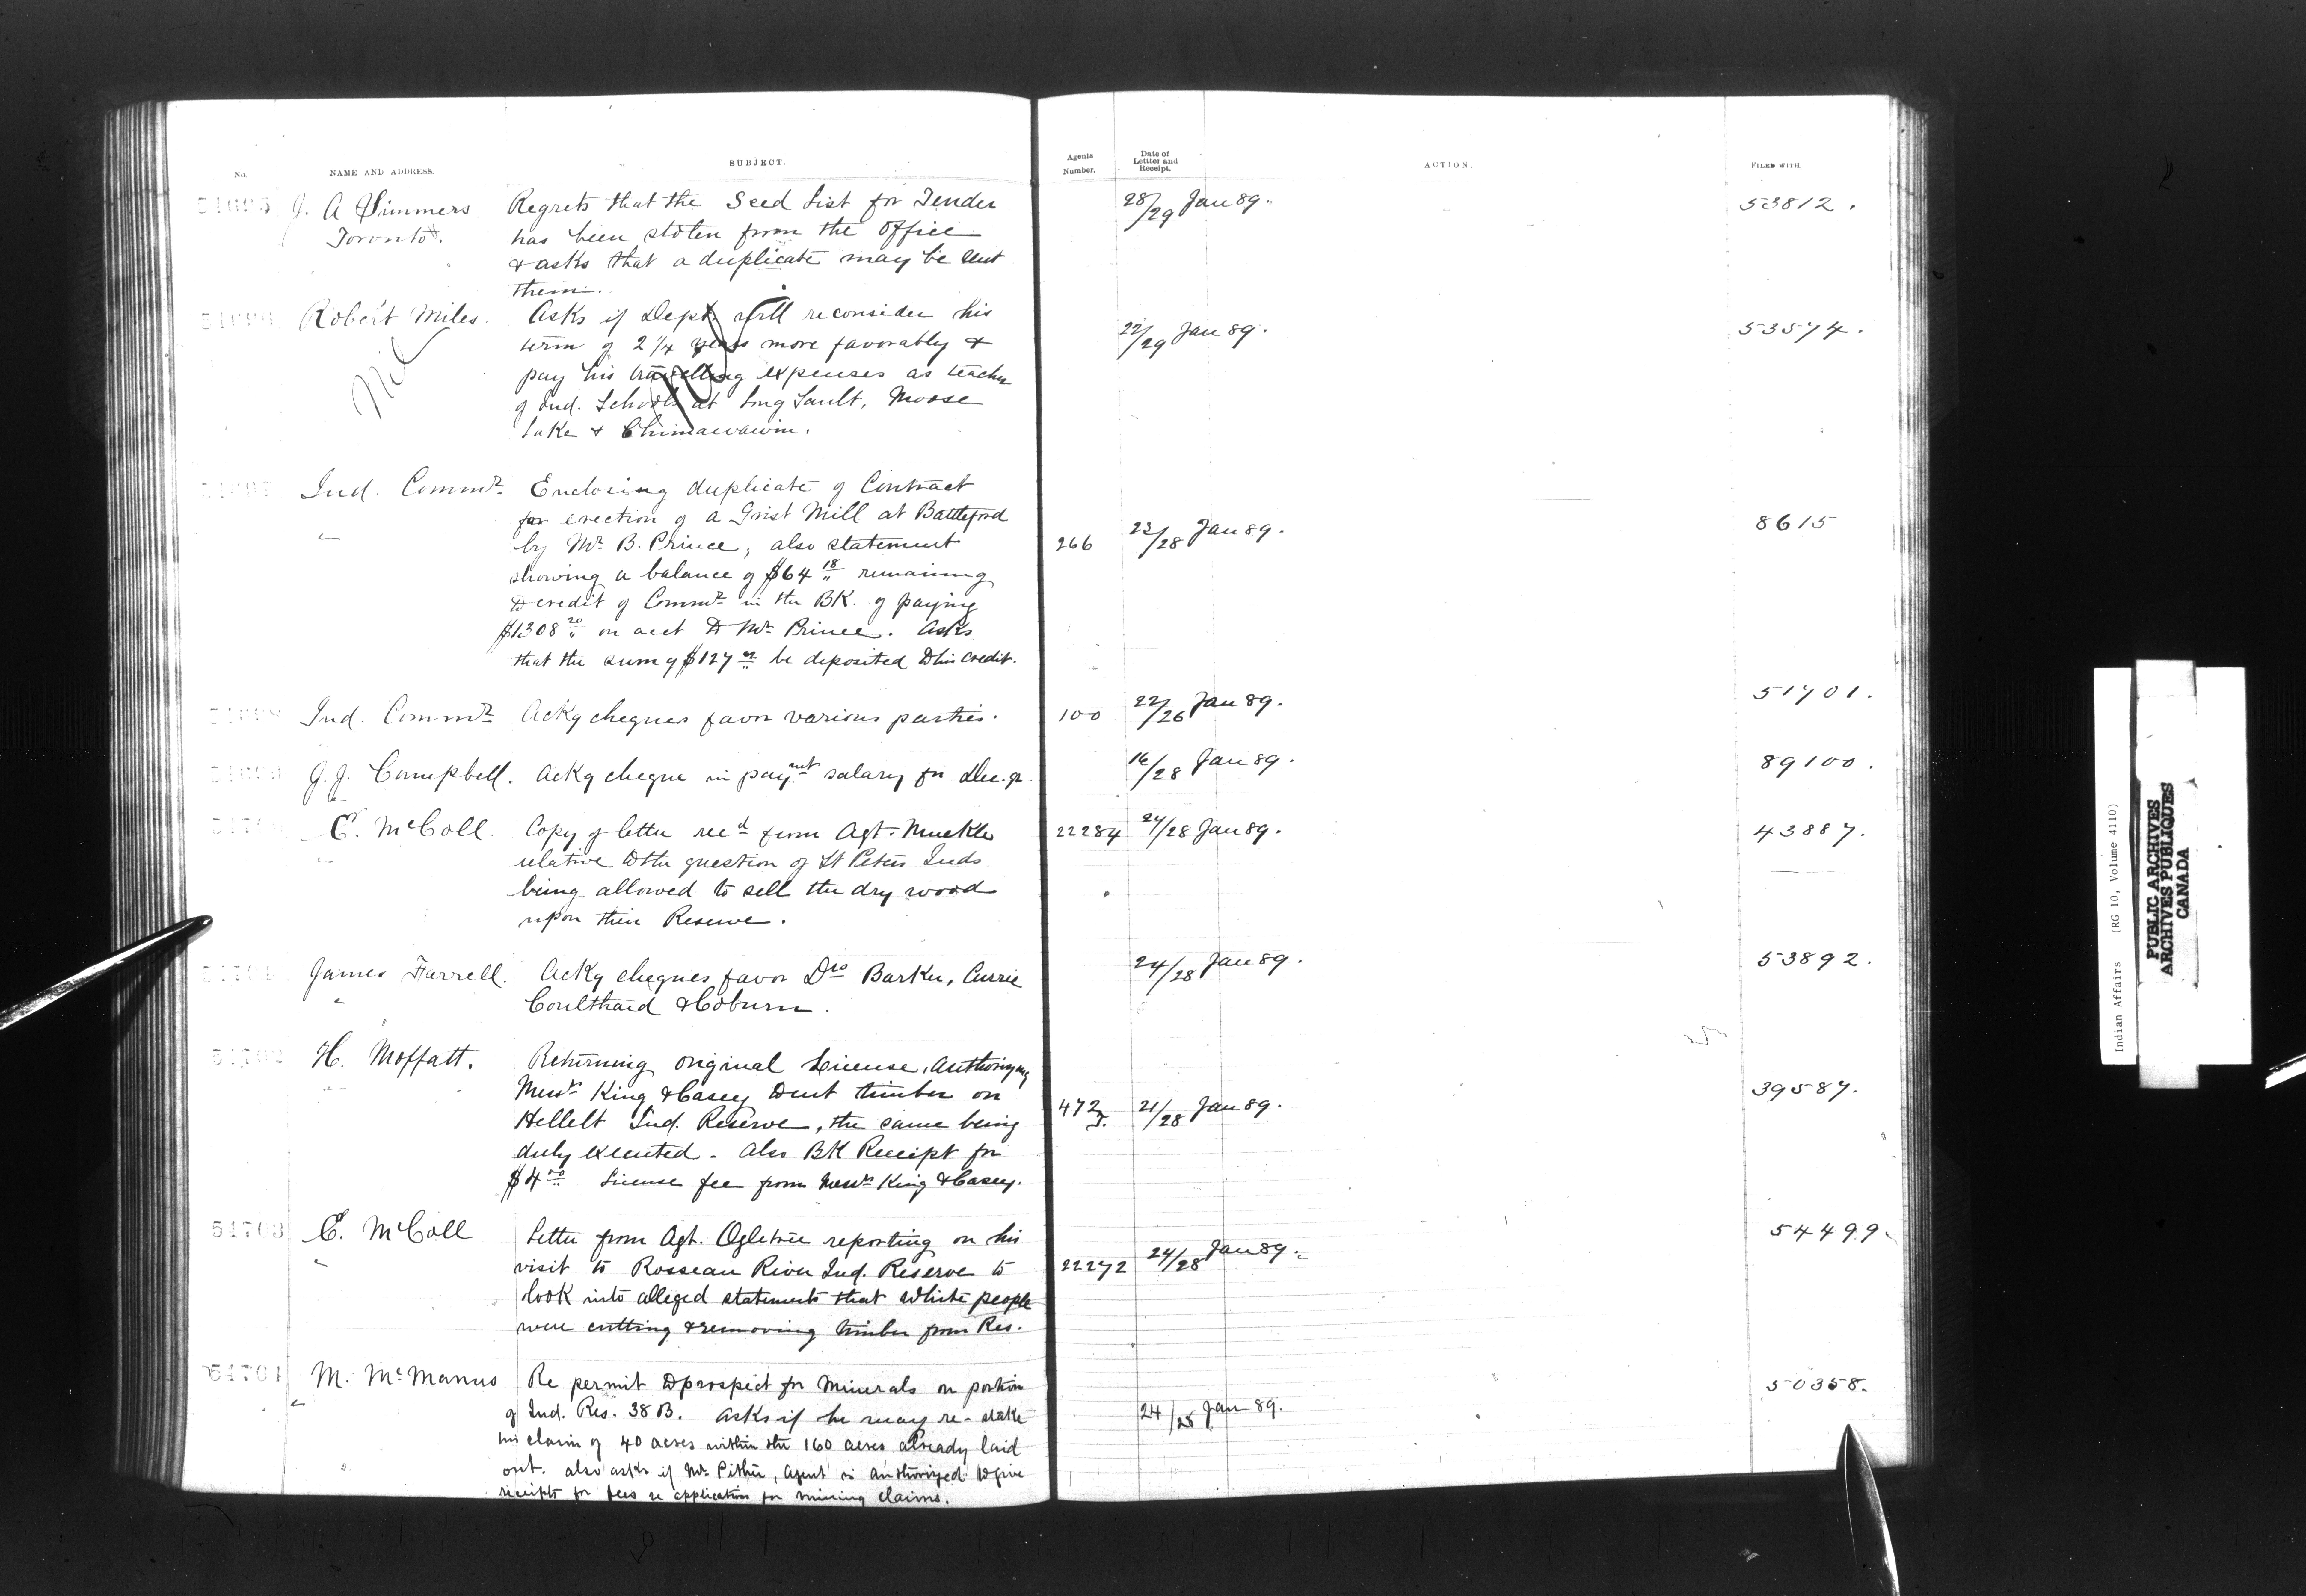 No. NAME AND ADDRESS. SUBJECT. Agents Number. Date of Letter and Receipt. ACTION. FILED WITH.
54695 J. A Simmers Regrets that the Seed List for Tender 28/29 Jan 89. 53812.
Toronto. has been stolen from the Office
& asks that a duplicate may be sent
them.
54696 Robert Miles. Asks if Dept. will reconsider his 22/29 Jan 89. 53574.
term of 2 1/4 years more favorably &
pay his travelling expenses as teacher
Nil
of Ind. Schools at Long Sault, Moose
Lake & Chimawawin.
54697 Ind. Commr. Enclosing duplicate of Contract
for erection of a Grist Mill at Battleford 266 23/28 Jan 89. 8615
by Mr. B. Prince; also statement
showing a balance of $64 18 remaining
to credit of Commr. in the BK. of paying
$1308 20 on acct to Mr. Prince. Asks
that the sum of $127 be deposited to his credit.
54698 Ind. Commr. Ackg cheques favor various parties. 100 22/26 Jan 89. 51701.
54699 G. J. Campbell. Ackg cheque in paymt salary for Dec. qr. 16/28 Jan 89. 89100.
54700 E. McColl. Copy of letter recd from Agt. Muckle 22284 24/28 Jan 89. 43887.
relative to the question of St Peters Inds
being allowed to sell the dry wood
upon their Reserve.
54701 James Farrell. Ackg cheques favor Drs Barker, Currie 24/28 Jan 89. 53892.
Coulthard & Coburn.
54702 H. Moffatt. Returning original License, Authorizing
Messrs King & Casey to cut timber on 472 J. 21/28 Jan 89. 39587.
Hellelt Ind. Reserve, the same being
duly executed - also BK Receipt for
$4 00 License fee from Messrs King & Casey.
54703 E. McColl Letter from Agt. Ogletree reporting on his 54499
visit to Rosseau River Ind. Reserve to 22272 24/28 Jan 89.
look into alleged statements that white people
were cutting & removing timber from Res.
54704 M. McManus Re permit to prospect for Minerals on portion 50358.
of Ind. Res. 38 B. Asks if he may re-stake 24/28 Jan 89.
his claim of 40 acres within the 160 acres already laid
out. also asks if Mr. Pither, Agent is authorized to give
receipts for fees re application for mining claims.
Indian Affairs (RG 10, Volume 4110)
PUBLIC ARCHIVES
ARCHIVES PUBLIQUES
CANADA